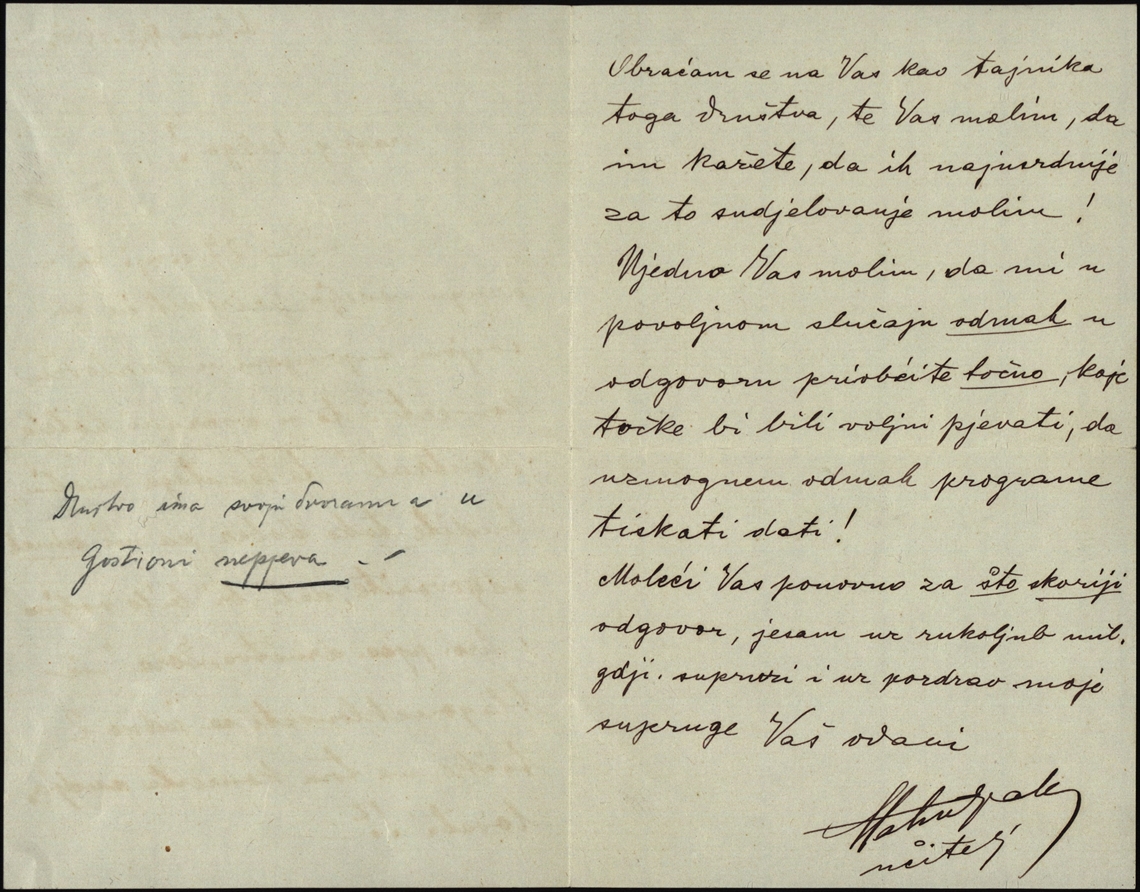 Društvo ima svoju dvoranu a u
Gostioni nepjeva . –
Obraćam se na Vas kao tajnika
toga društva, te Vas molim, da
im kažete, da ih najusrdnije
za to sudjelovanje molim !
Ujedno Vas molim, da mi u
povoljnom slučaju odmah u
odgovoru priobćite točno, koje
točke bi bili voljni pjevati, da
uzmognem odmah programe
tiskati dati !
Moleći Vas ponovno za što skoriji
odgovor, jesam uz rukoljub mil.
gdji. supruzi i uz pozdrav moje
supruge Vaš odani
učitelj